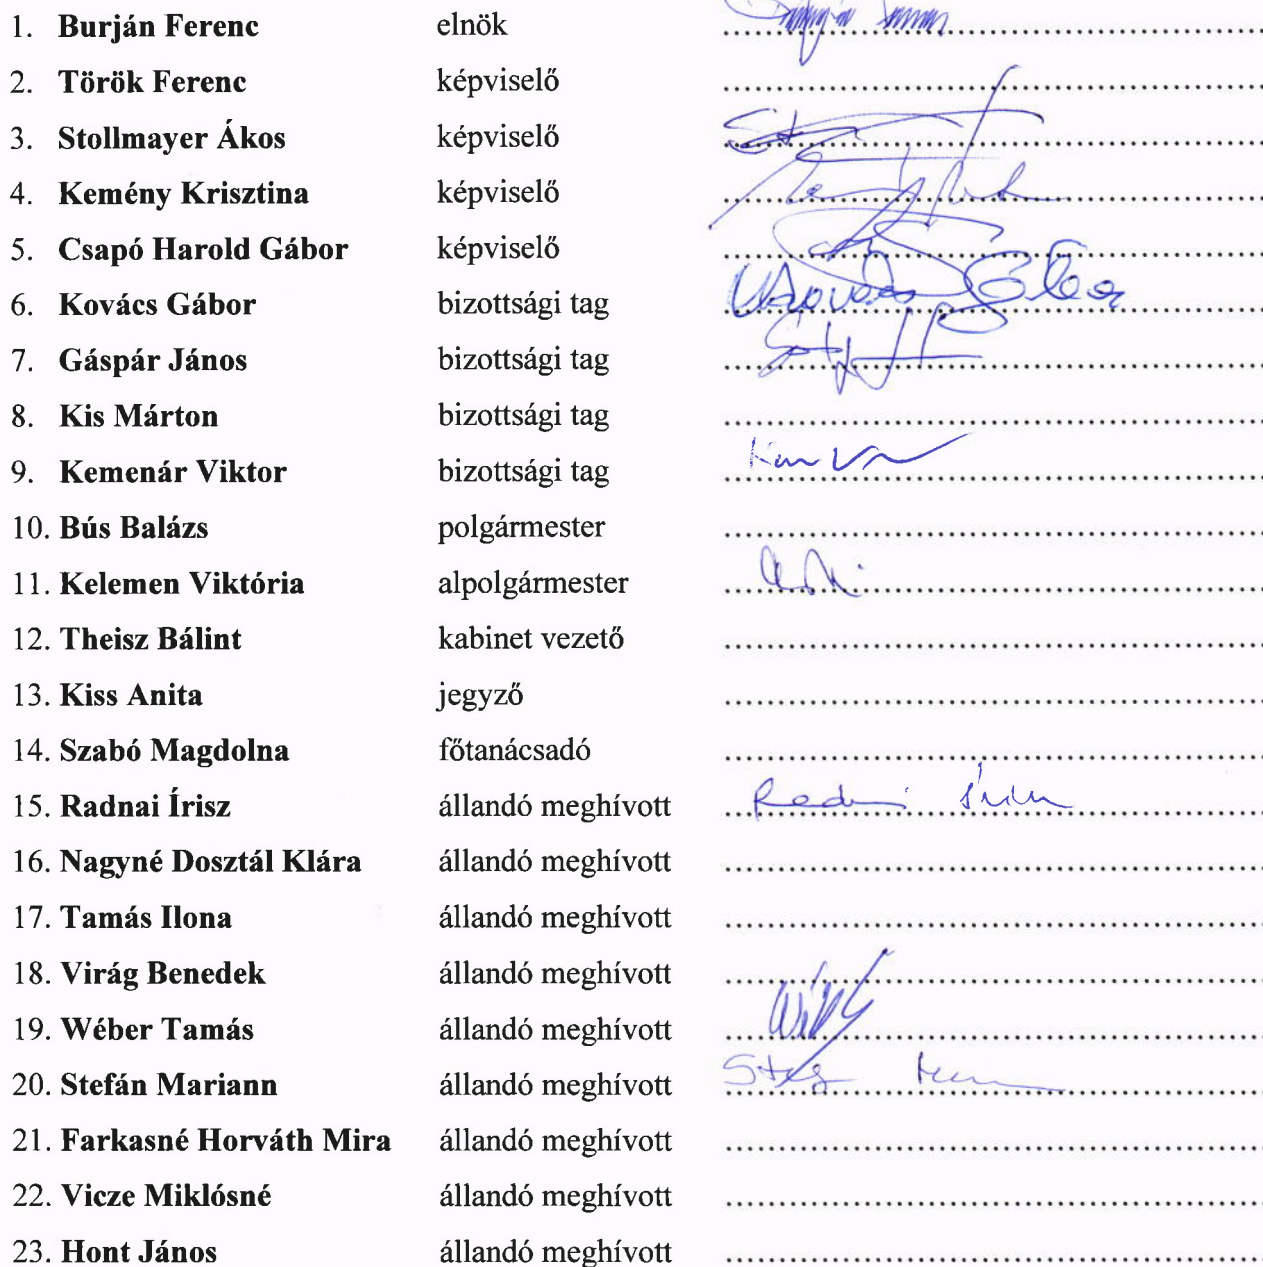 1. Burján Ferenc elnök
2. Török Ferenc képviselő
3. Stollmayer Ákos képviselő
4. Kemény Krisztina képviselő
5. Csapó Harold Gábor képviselő
6. Kovács Gábor bizottsági tag
7. Gáspár János bizottsági tag
8. Kis Márton bizottsági tag
9. Kemenár Viktor bizottsági tag
10. Bús Balázs polgármester
11. Kelemen Viktória alpolgármester
12. Theisz Bálint kabinet vezető
13. Kiss Anita jegyző
14. Szabó Magdolna főtanácsadó
15. Radnai Írisz állandó meghívott
16. Nagyné Dosztál Klára állandó meghívott
17. Tamás Ilona állandó meghívott
18. Virág Benedek állandó meghívott
19. Wéber Tamás állandó meghívott
20. Stefán Mariann állandó meghívott
21. Farkasné Horváth Mira állandó meghívott
22. Vicze Miklósné állandó meghívott
23. Hont János állandó meghívott